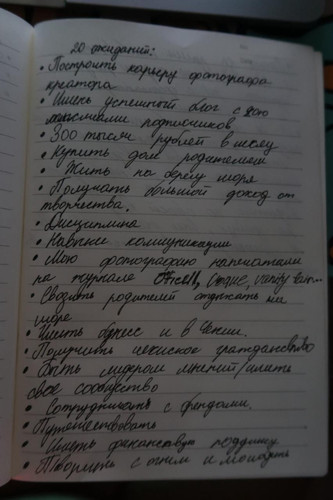 20 ожиданий:
• Построить карьеру фотографа
креатора
• Иметь успешный блог с
тысячами подписчиков
• 300 тысяч рублей в месяц
• Купить дом родителям
• Жить на берегу моря
• Получать большой доход от
творчества.
• Дисциплина
• Навыки коммуникации
• Мою фотографию напечатали
на журнале
• Свозить родителей отдыхать на
море
• Иметь бизнес и в Чехии.
• Получить чешское гражданство
• Быть лидером мнений/иметь
свое сообщество
• Сотрудничать с брендами.
• Путешествовать
• Иметь финансовую подушку
• Творить с огнем и